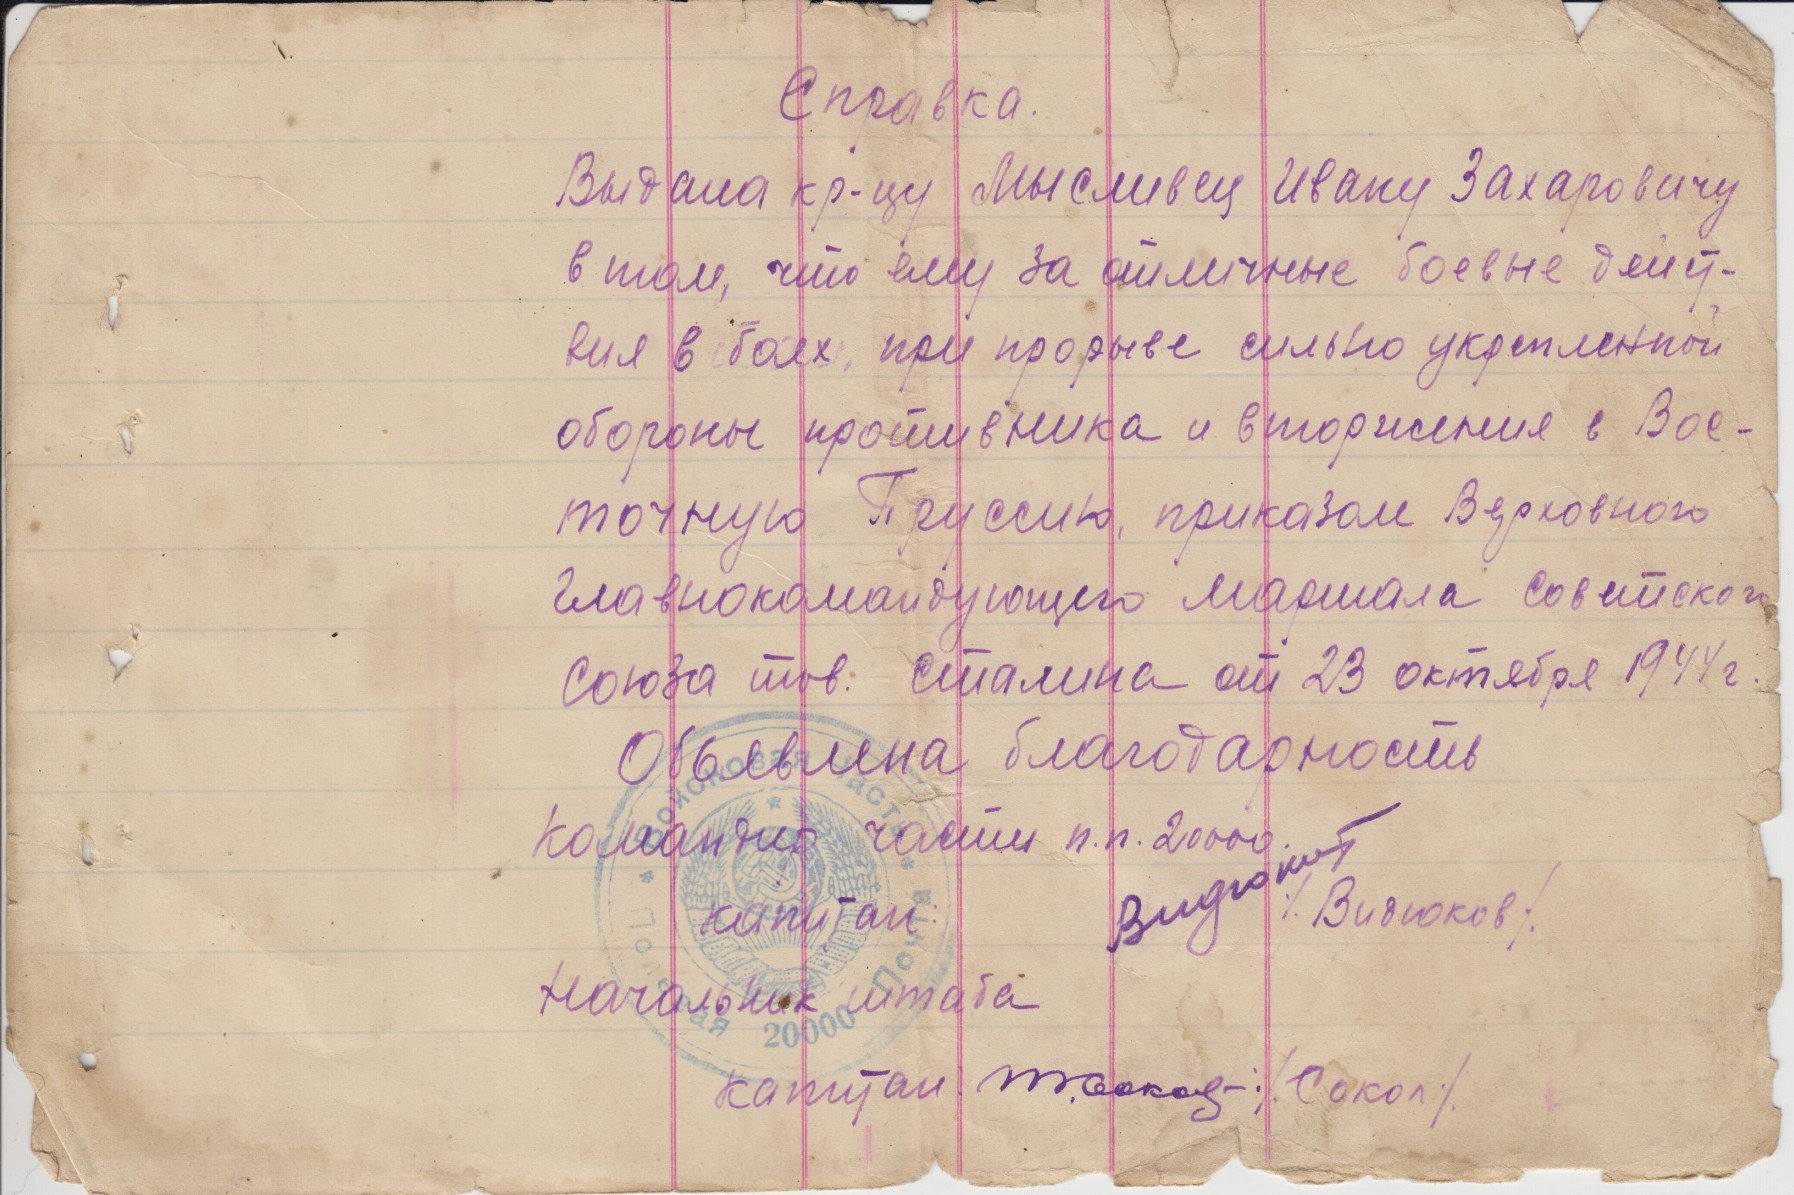 Справка.
Выдана кр-цу Мысливец Ивану Захаровичу
в том, что ему за отличные боевые дейст-
вия в боях, при прорыве сильно укрепленной
обороны противника и вторжения в Вос-
точную Пруссию, приказом Верховного
Главнокомандующего Маршала Советского
Союза тов. Сталина от 23 октября 1944 г.
Объявлена благодарность
Командир части п.п. 20000.
капитан: /Видюков/.
Начальник штаба
капитан: /Сокол/.
Войсковая часть * Полевая Почта *
20000